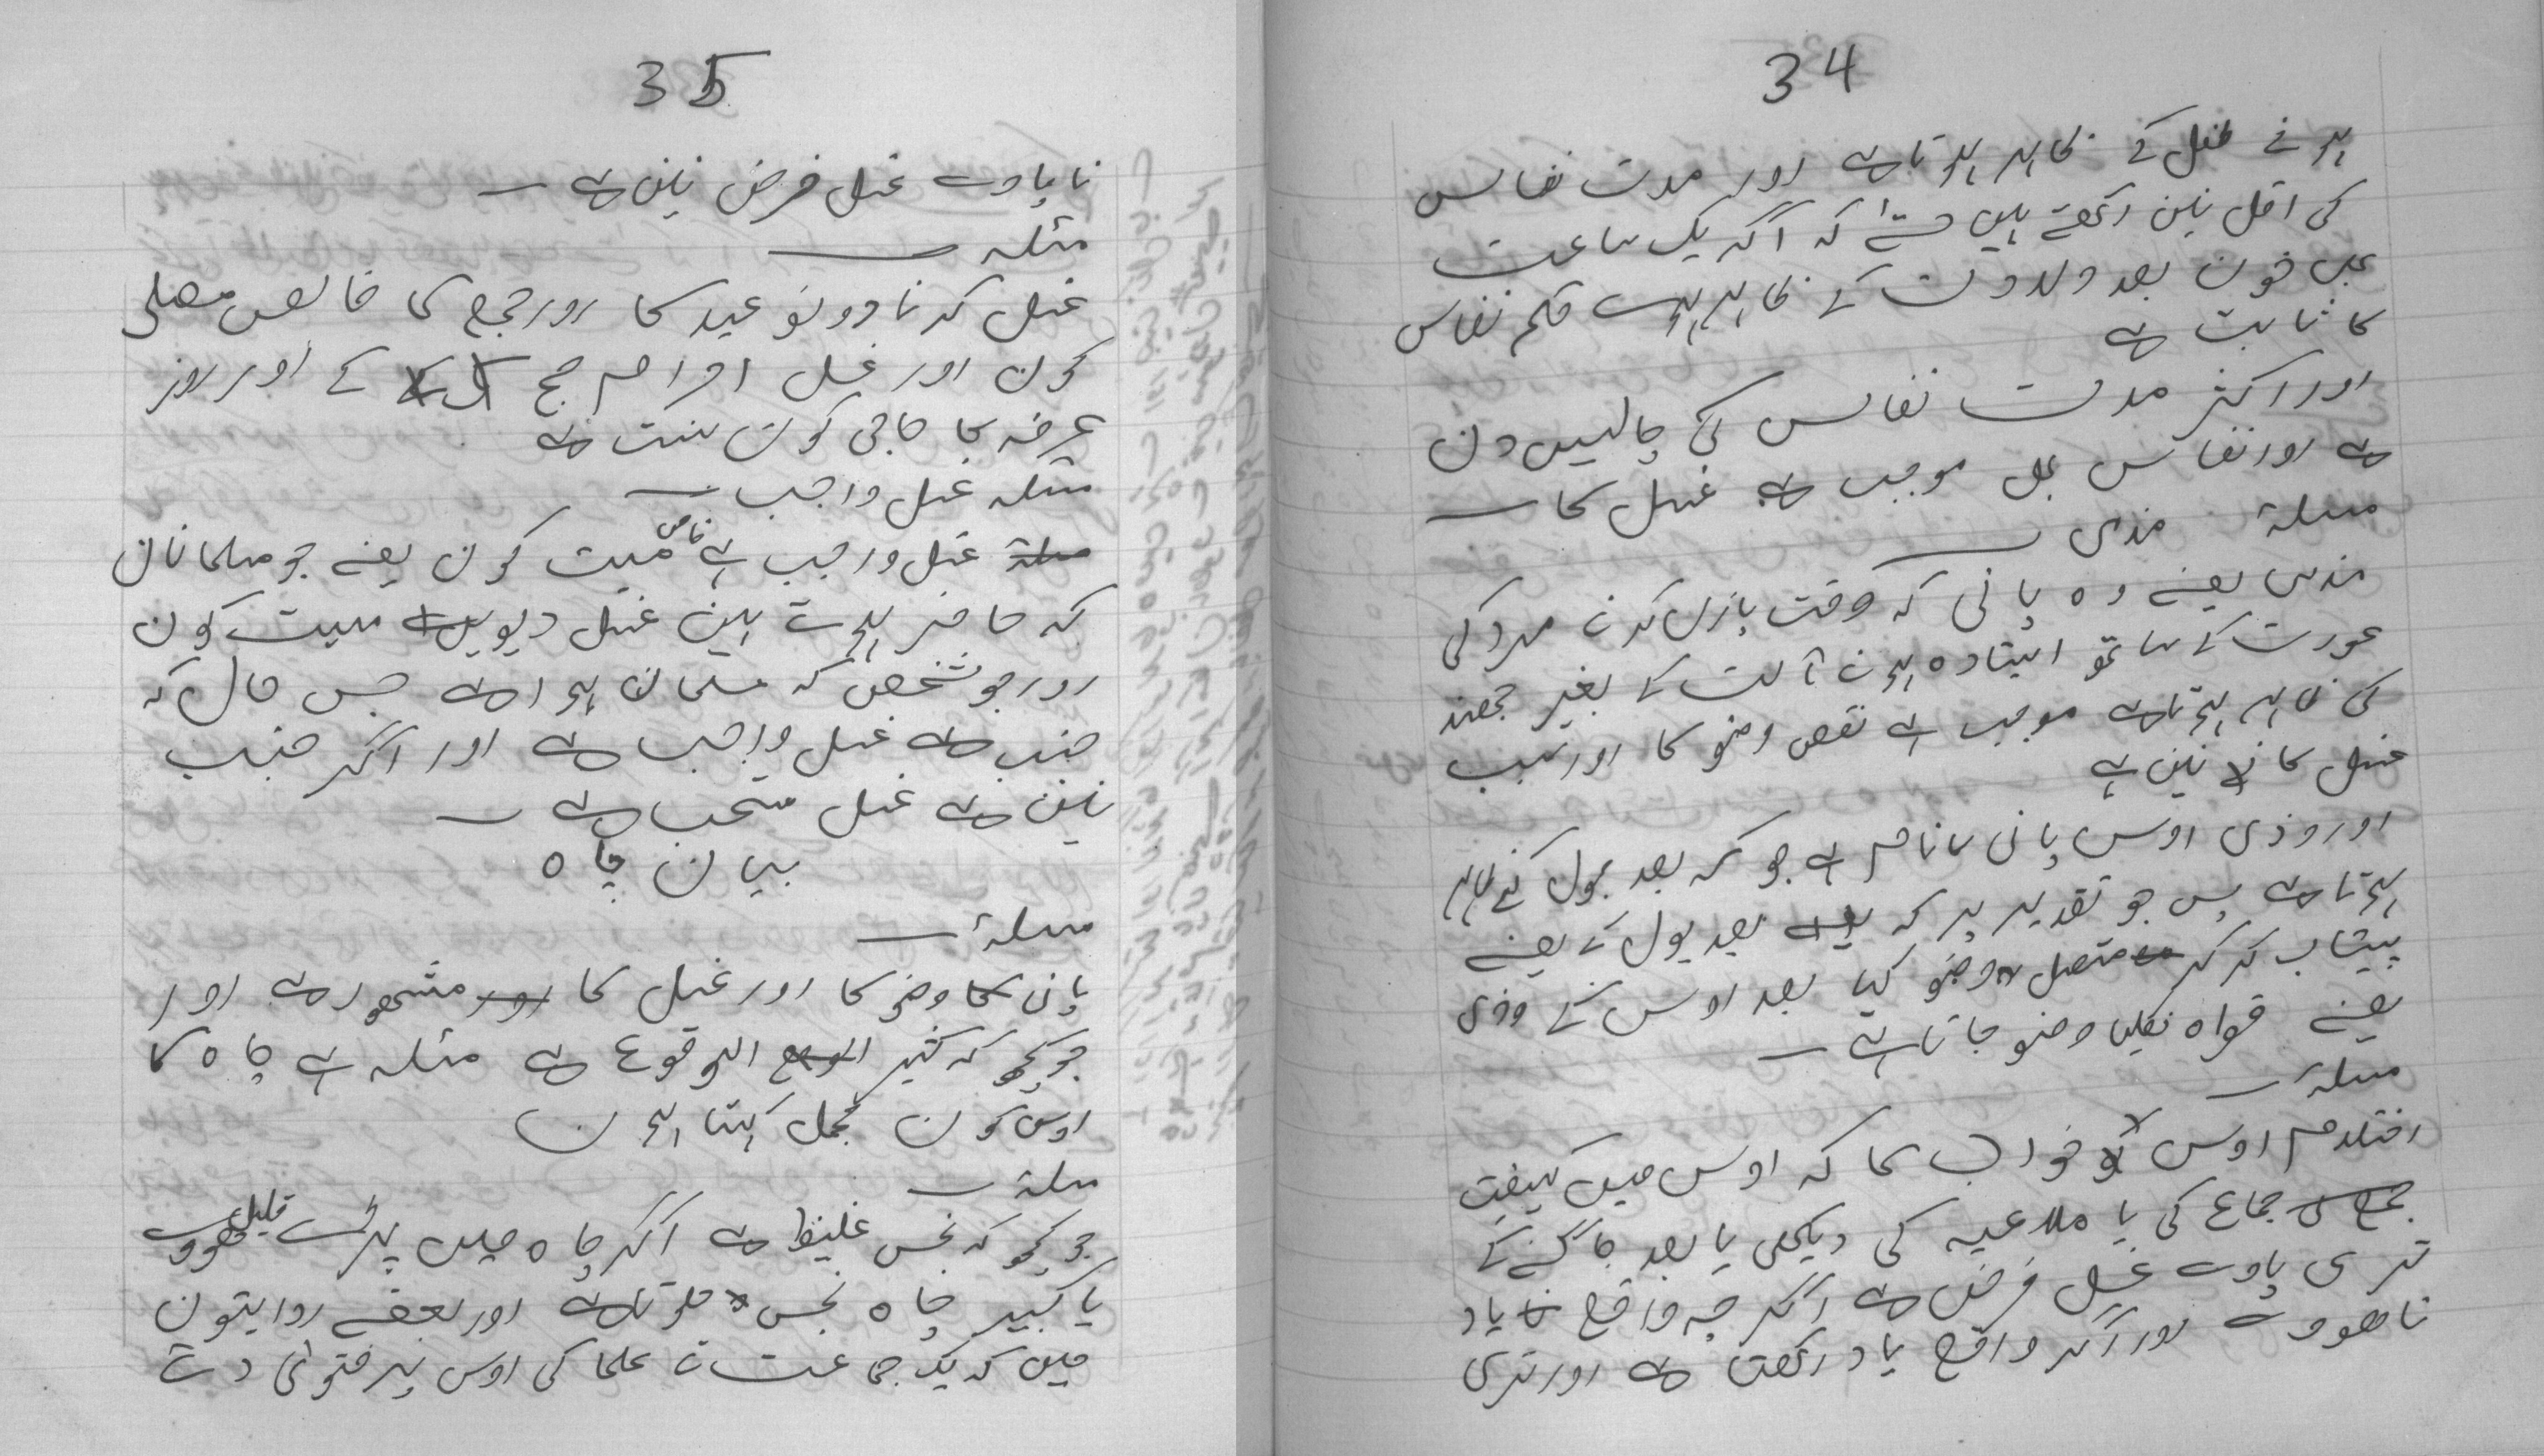 34
ہونے طفل کے ظاہر ہوتا ہے اور مدت نفاس
کی اقل نیں رکھتے ہیں حتےٰ کہ اگر یک ساعت
بھی خون بعد ولادت کے ظاہر ہوے حکم نفاس
کا ثابت ہے
اور اکثر مدت نفاس کی چالیس دن
ہے اور نفاس بھی موجب ہے غسل کا
مسلۂ مذی
مذی یعنے وہ پانی کہ وقت بازی کرنے مرد کی
عورت کے ساتھ ایستادہ ہونے آلت کے بغیر جھند
کی ظاہر ہوتا ہے موجب ہے نقص وضو کا اور سبب
غسل کا نیں ہے
اور وذی اوس پانی کا نام ہے جو کہ بعد بول کے ظاہر
ہوتا ہے پس جو تقدیر پر کہ بعد بول کے یعنے
پیشاب کر کر متصل وضو کیا بعد اوس کے وذی
یعنے قواہ نکلیا وضو جاتا ہے
مسلۂ
احتلام اوس خواب کا کہ اوس میں کیفیت
جماع کی یا ملاعبہ کی دیکھے یا بعد جاگنے کے
تری پاوے غسل فرض ہے اگر چہ واقع یاد
نا ھووے اور اگر واقع یاد رکھتا ہے اور تری
35
نا پاوے غسل فرض نیں ہے
مسئلہ
غسل کرنا دونو عید کا اور جمع کا خالص مصلی
کون اور غسل احرام حج کے اور روز
عرفہ کا حاجی کون سنت ہے
مسئلہ غسل واجب
غسل واجب ہے خاص میت کون یعنے جو مسلمانان
کہ حاضر ہوتے ہیں غسل دیویں میت کون
اور جو شخص کہ مسلمان ہوا ہے جس حال کہ
جنب ہے غسل واجب ہے اور اگر جنب
نیں ہے غسل مستحب ہے
بیان چاہ
مسلۂ
پانی وضو کا اور غسل کا مشھور ہے اور
جو کچھ کہ کثیر الوقوع ہے مسئلہ ہے چاہ کا
اوس کون مجمل کہتا ہوں
مسلۂ
جو کچھ کہ نجس غلیظ ہے اگر چاہ میں پڑے قلیل ھووے
یا کبیر چاہ نجس ھوتا ہے اور بعضے روایتون
میں کہ یک جماعت نے علما کی اوس پر فتویٰ دئے